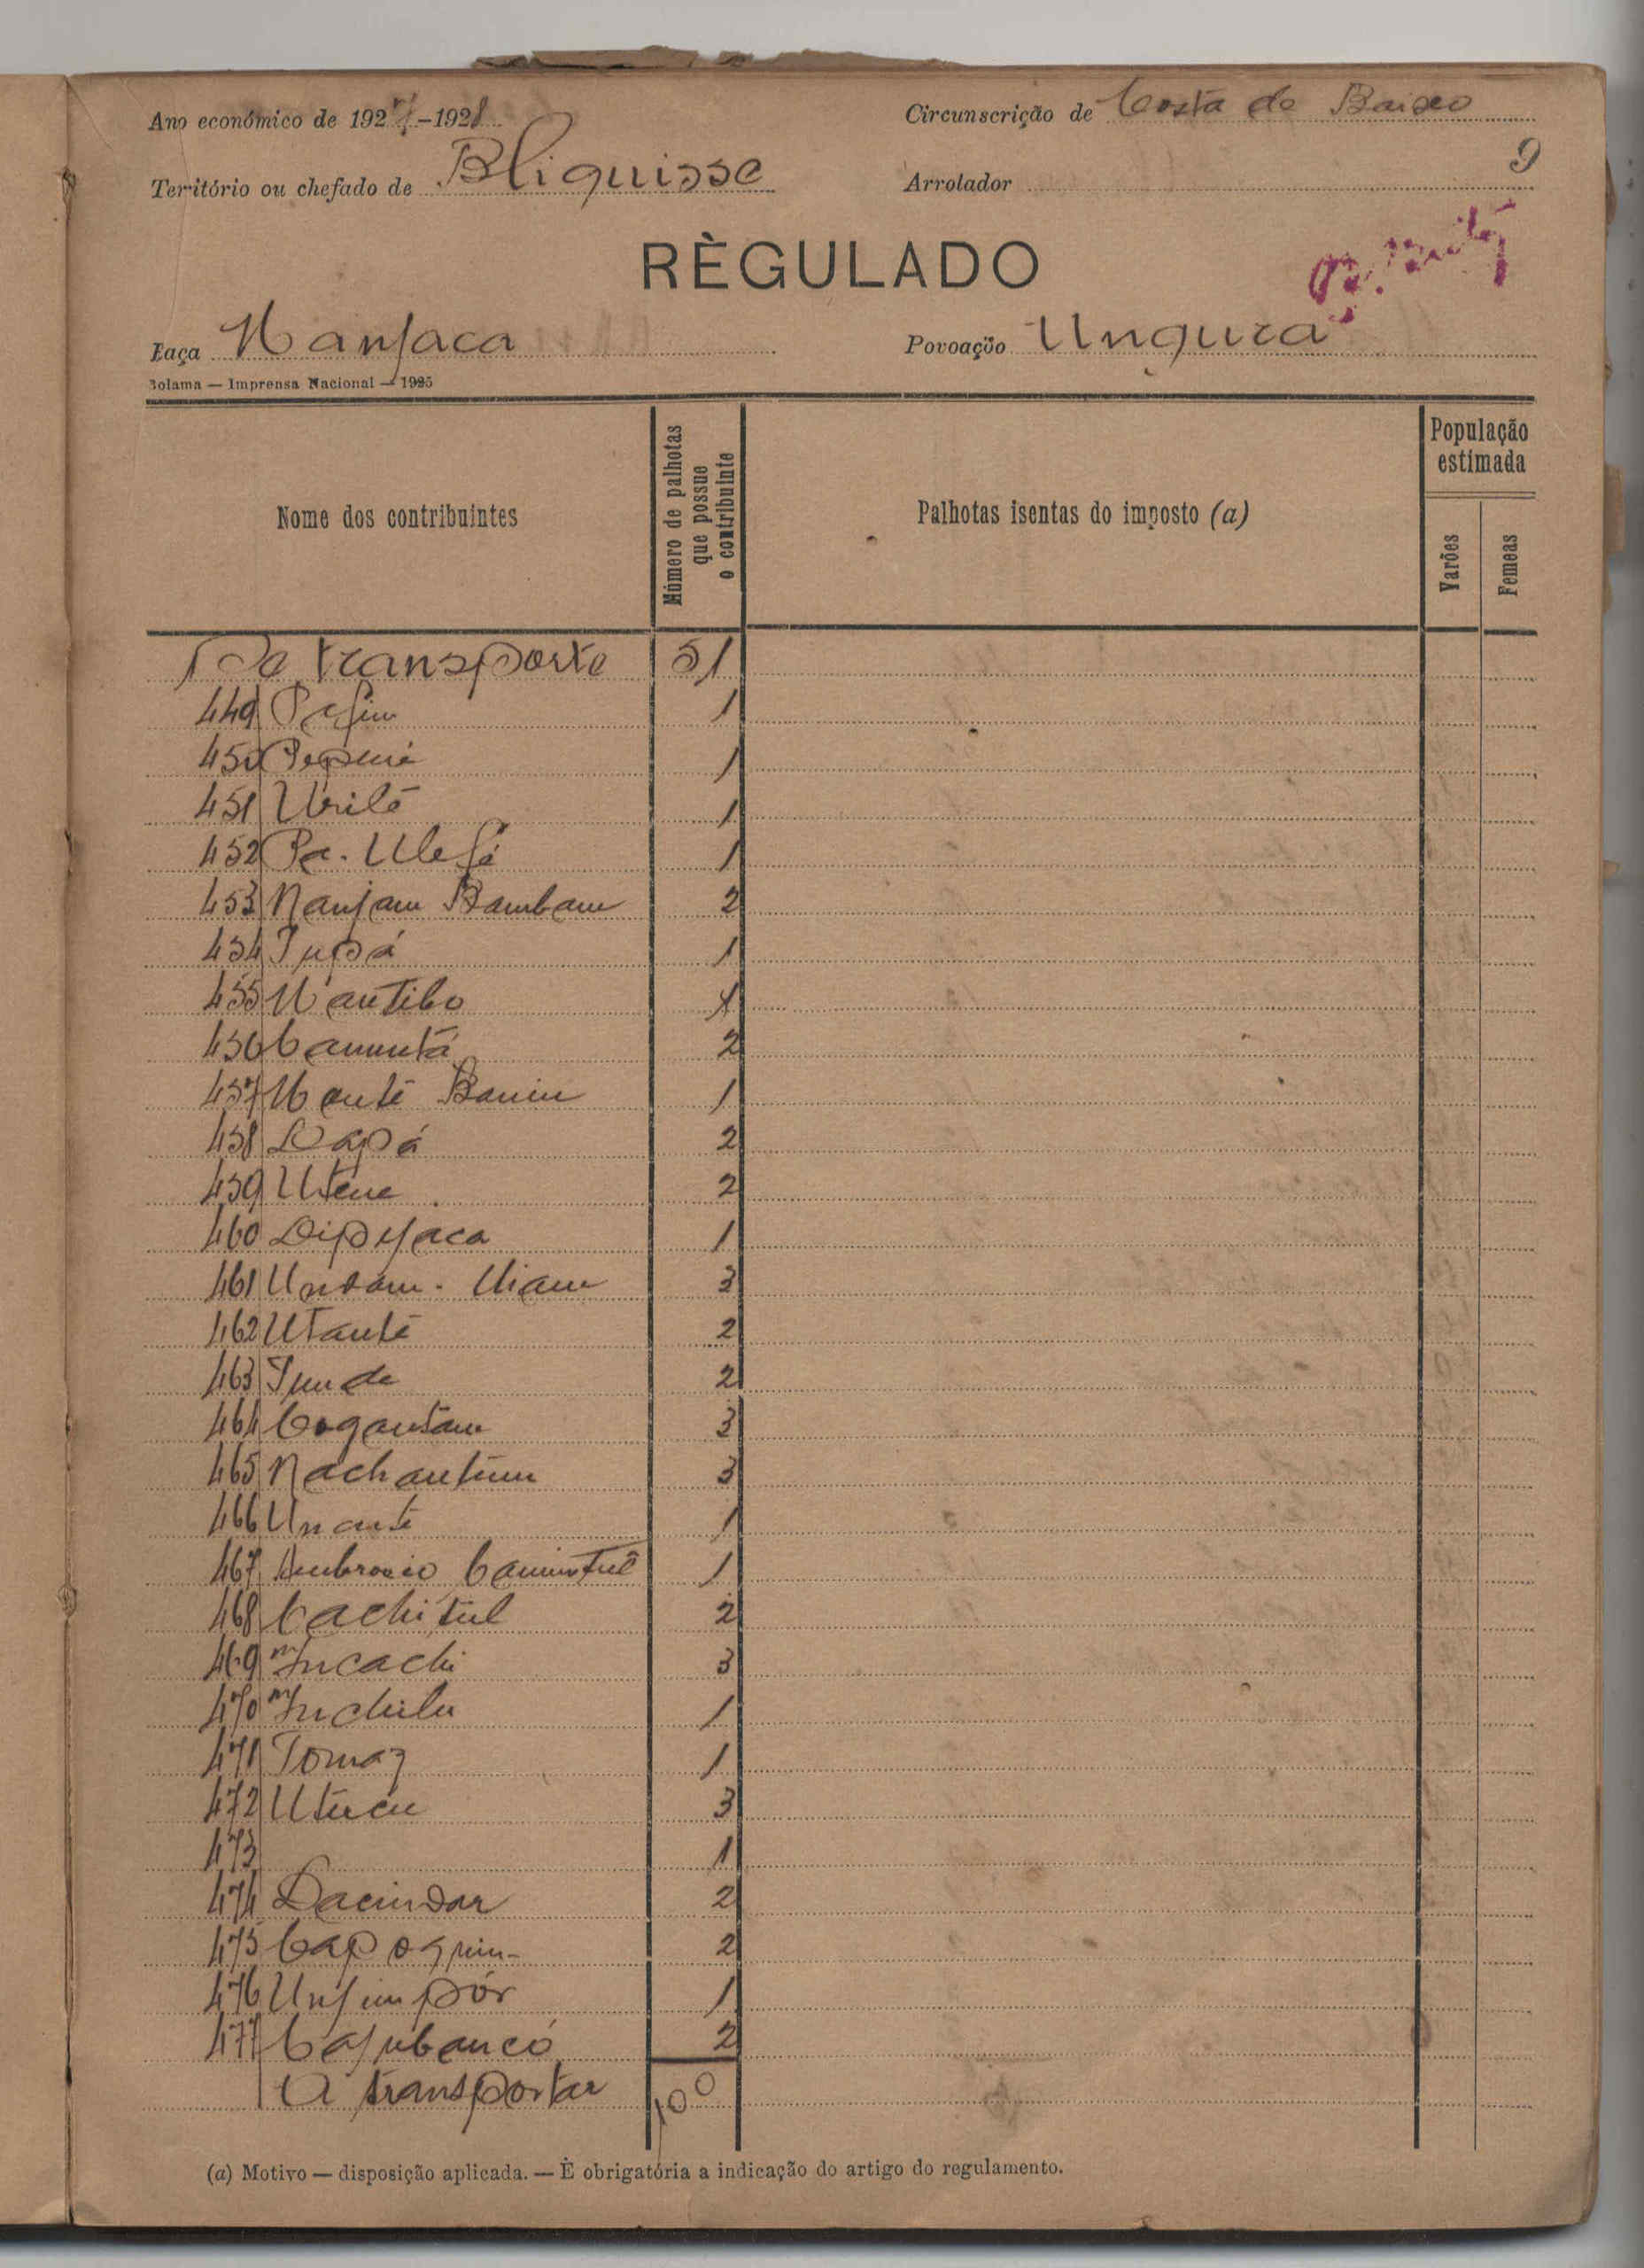 Ano económico de 1927-1928
Circunscrição de Costa de Baixo
9
Território ou chefado de Bliquisse
Arrolador
RÈGULADO
Raça Manjaca
Povoação Ungura
Bolama — Imprensa Nacional — 1925
Nome dos contribuintes
Número de palhotas que possue o contribuinte
Palhotas isentas do imposto (a)
População estimada
Varões
Femeas
De transporte 51
449 1
450 1
451 Urilé 1
452 Pa. Ulefé 1
453 Nanjam Bambam 2
454 Jupá 1
455 Nantibo 1
456 Camintá 2
457 1
458 Dapá 2
459 Utene 2
460 1
461 3
462 Utanté 2
463 2
464 3
465 Nachantim 3
466 Unanté 1
467 Ambrosio 1
468 Cachitul 2
469 Incachi 3
470 Inchilu 1
471 Tomaz 1
472 Utucu 3
473 1
474 2
475 2
476 1
477 Cajubancó 2
A transportar 100
(a) Motivo — disposição aplicada. — È obrigatória a indicação do artigo do regulamento.